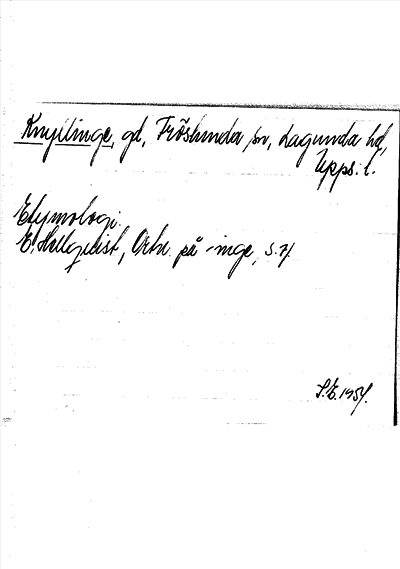 Knyllinge, gd, Fröslunda sn, Lagunda hd,
Upps. l.
Etymologi.
E. Hellquist, Ortn. på -inge, s. 71.
S.E. 1954.